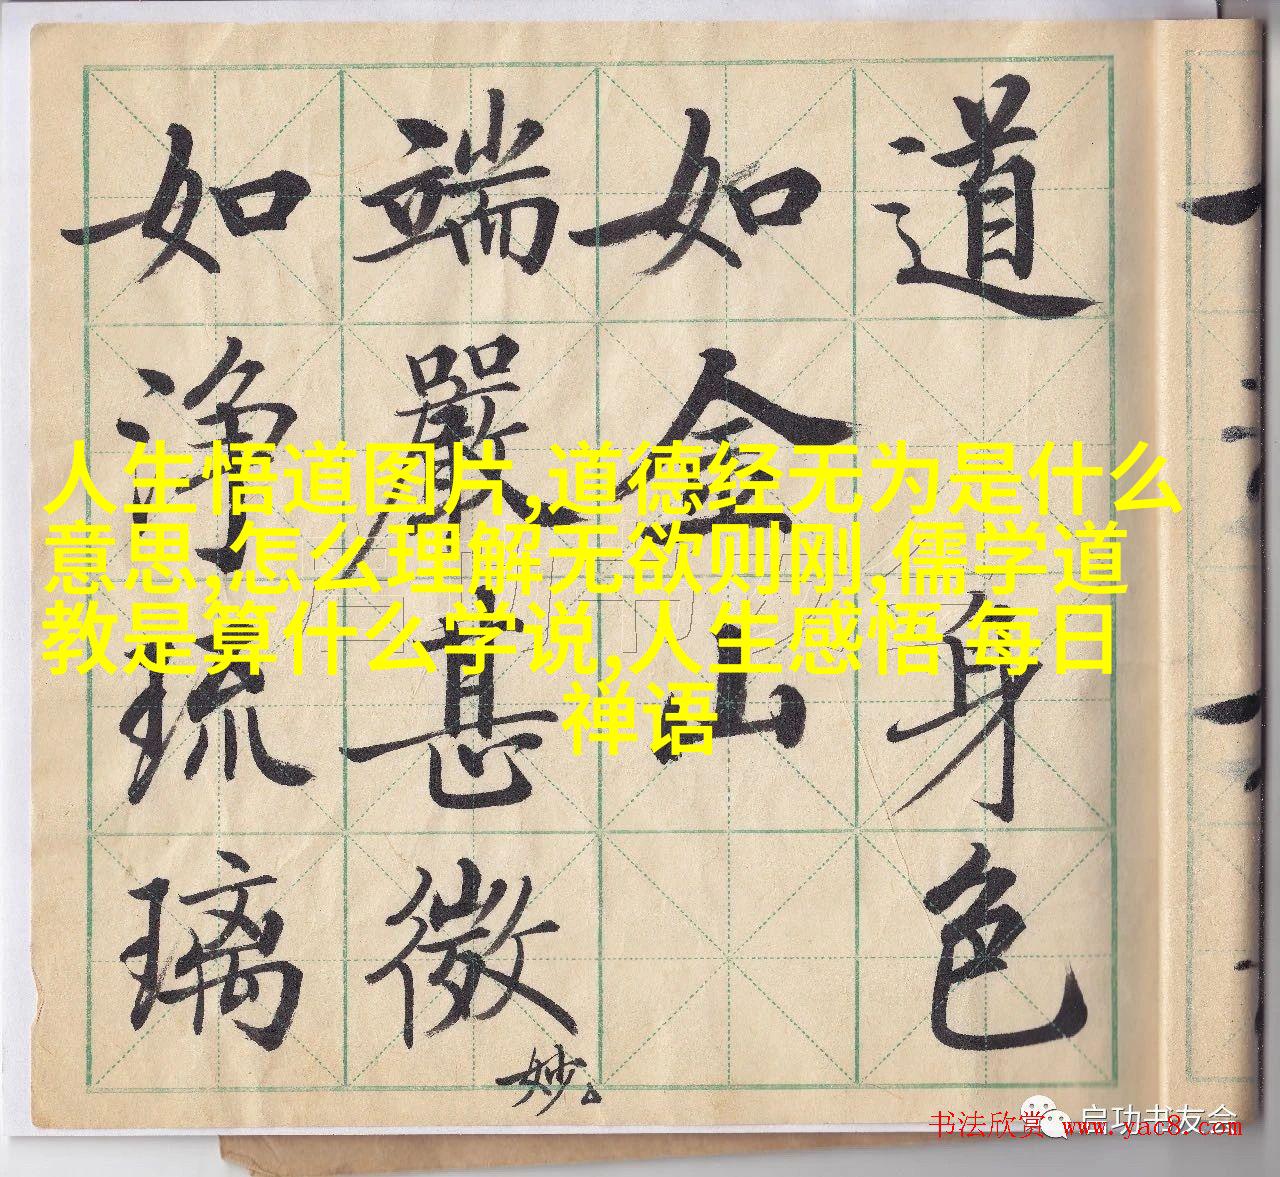 人生悟道图片,道德经无为是什么
意思,怎么理解无欲则刚,儒学道
教是算什么学说,人生感悟 每日
禅语
道 身色
如金山
端嚴甚微妙
如淨琉璃
启功书友会
书法欣赏 www.yac8.com